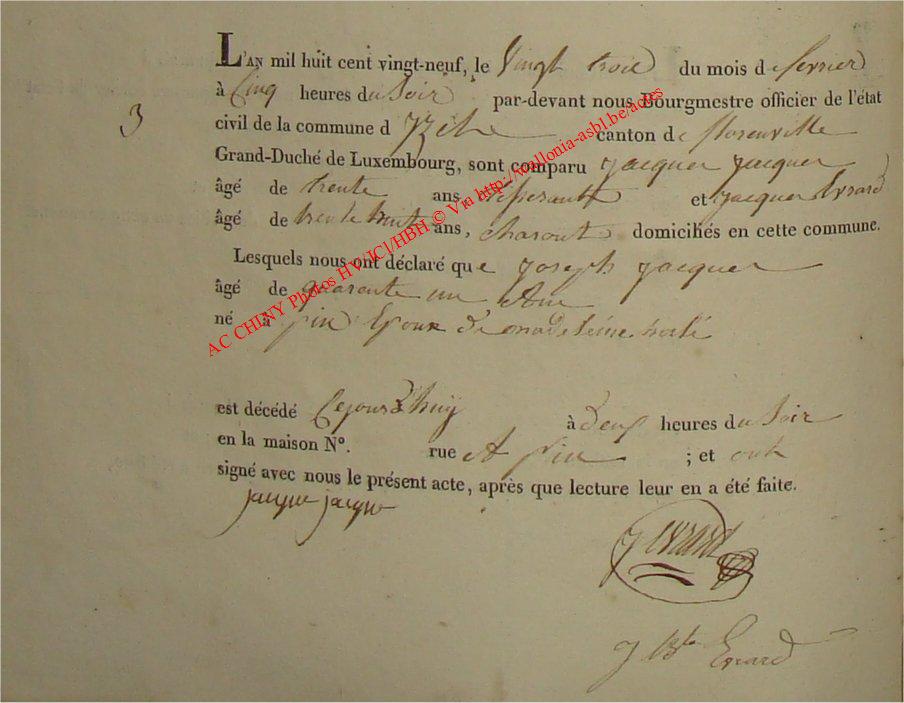 L'AN mil huit cent vingt-neuf, le Vingt trois du mois de fevrier
à Cinq heures du Soir par-devant nous Bourgmestre officier de l'état
3
civil de la commune d'Izel canton de florenville
Grand-Duché de Luxembourg, sont comparu jacques jacques
âgé de trente ans, et jacques Evrard
âgé de trente huit ans, domiciliés en cette commune.
Lesquels nous ont déclaré que joseph jacques
âgé de quarante un Ans
né à pin Epoux de madeleine
est décédé Cejourd'huy à deux heures du Soir
en la maison N°. rue A pin ; et ont
signé avec nous le présent acte, après que lecture leur en a été faite.
jacque jacque
J Evrard
J Bte Evrard
AC CHINY Photos HV/JCl/HBH © Via http://wallonia-asbl.be/actes